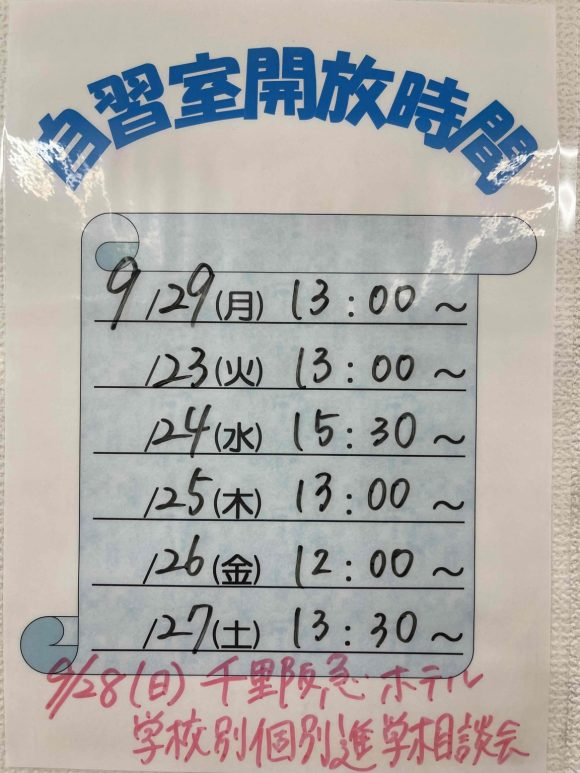 自習室開放時間
9/29(月) 13:00～
/23(火) 13:00～
/24(水) 15:30～
/25(木) 13:00～
/26(金) 12:00～
/27(土) 13:30～
9/28(日) 千里阪急ホテル
学校別個別進学相談会